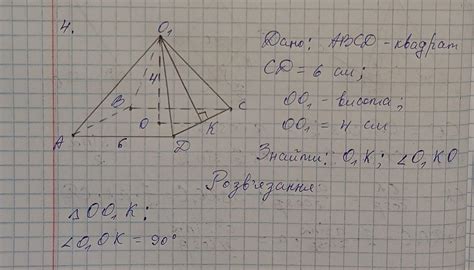 4.
O₁
4
B
C
O
K
A
6
D
Дано: ABCD - квадрат
CD = 6 см;
OO₁ - висота;
OO₁ = 4 см
Знайти: O₁K; ∠O₁KO
Розв'язання:
△OO₁K;
∠O₁OK = 90°